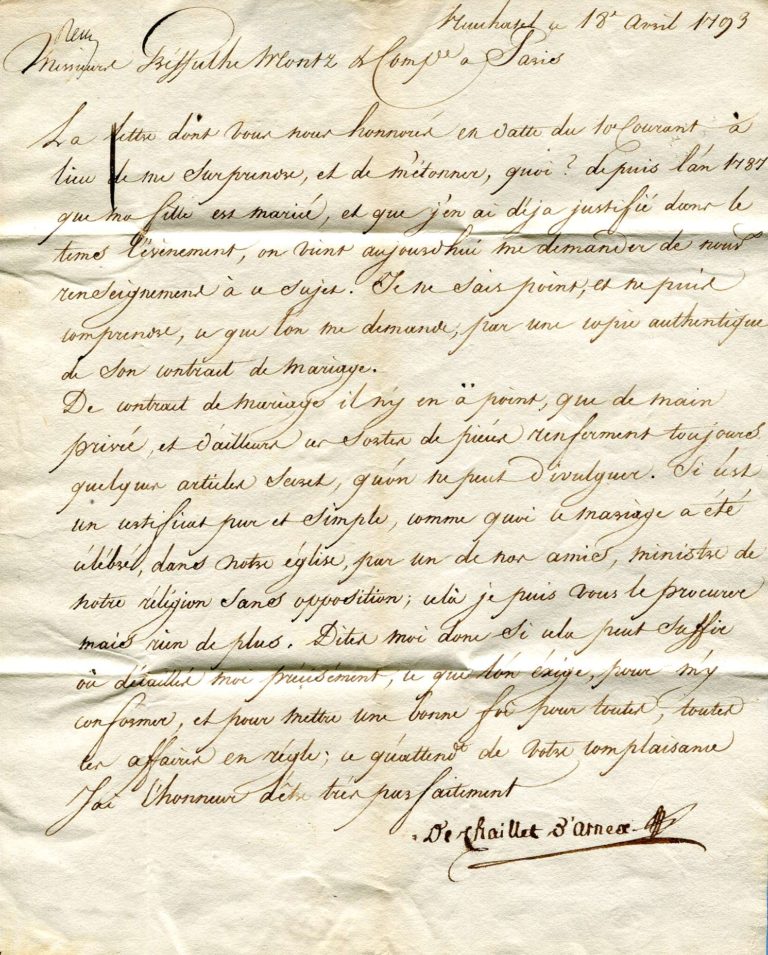 Neuchatel ce 18e Avril 1793
Messieurs Rissulhe Montz & Compe a Paris
La lettre dont vous nous honnorés en datte du 10e Courant à
lieu de me surprendre, et de m'étonner, quoi? depuis l'an 1787
que ma fille est mariée, et que j'en ai déja justifié dans le
tems l'évènement, on vient aujourd'hui me demander de nouv
renseignemens à ce sujet. Je ne sais point, et ne puis
comprendre, ce que l'on me demande, par une copie authentique
de son contrait de mariage.
De contrait de mariage il n'y en ä point, que de main
privée, et d'ailleurs ces sortes de piéces renferment toujours
quelques articles secret, qu'on ne peut divulguer. Si c'est
un certificat pur et simple, comme quoi ce mariage a été
célébré, dans notre église, par un de nos amis, ministre de
notre réligion sans opposition; celà je puis vous le procurer
mais rien de plus. Dites moi donc si cela peut suffir
où détaillés moi précisément, ce que l'on éxige, pour m'y
conformer, et pour mettre une bonne foi pour toutes, toutes
ces affaires en régle; ce qu'attendt de votre complaisance
J'ai l'honneur d'être très parfaitement
De Chaillet D'Arnex